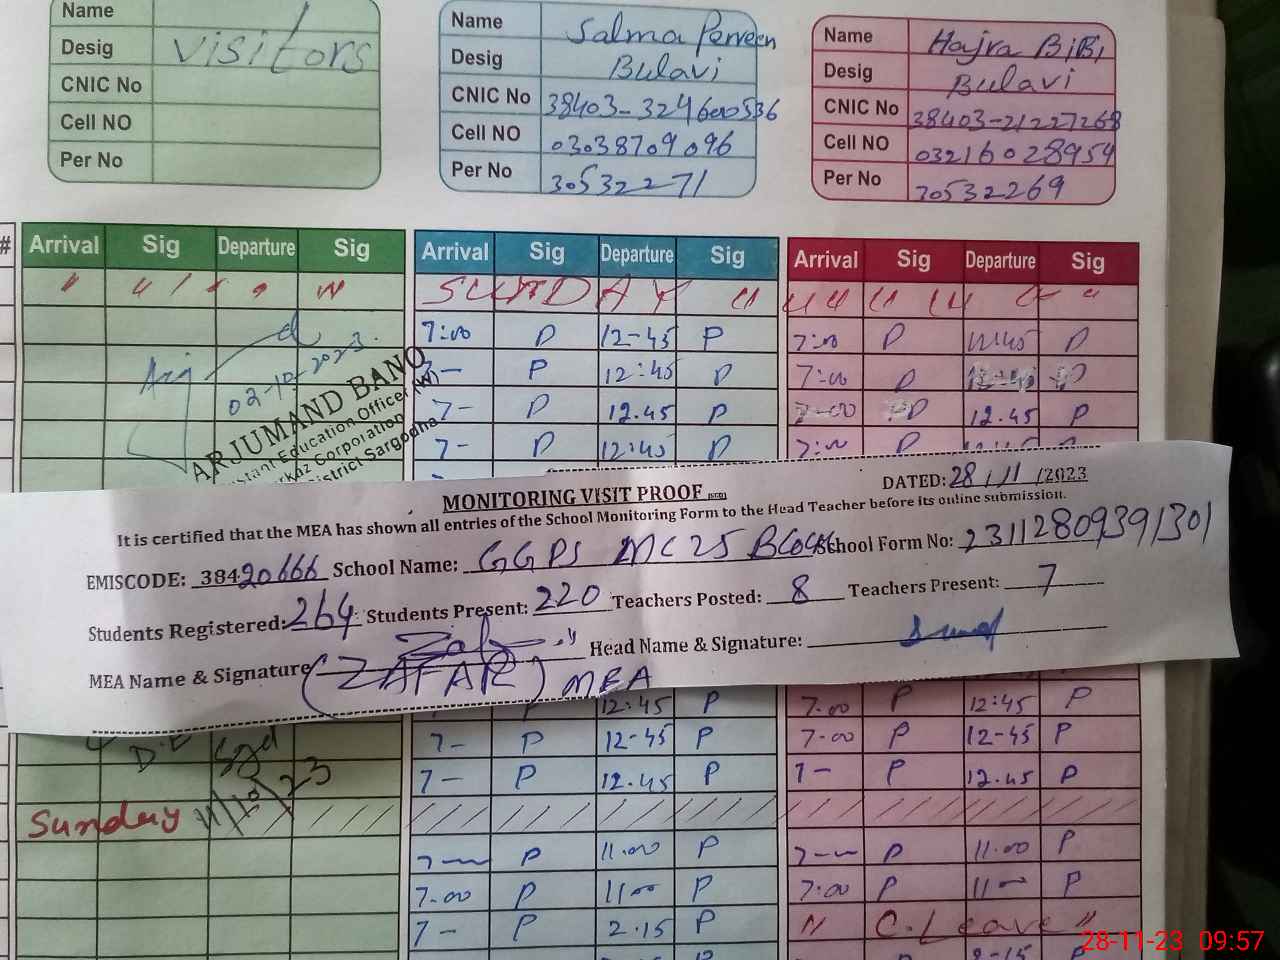 Name
Desig visitors
CNIC No
Cell NO
Per No
Name Salma Perveen
Desig Bulavi
CNIC No 38403-324600536
Cell NO 03038709096
Per No 30532271
Name Hajra BiBi
Desig Bulavi
CNIC No 38403-21227268
Cell NO 03216028954
Per No 30532269
# Arrival Sig Departure Sig Arrival Sig Departure Sig Arrival Sig Departure Sig
SUNDAY
7:00 P 12-45 P 7:00 P 12:45 P
7- P 12:45 P 7:00 P 12:45 P
7- P 12.45 P 7-00 P 12.45 P
7- P 12:45 P 7:00 P 12:45 P
02-10-2023.
ARJUMAND BANO
stant Education Officer (W)
rkaz Corporation
istrict Sargodha
MONITORING VISIT PROOF
DATED: 28/11/2023
It is certified that the MEA has shown all entries of the School Monitoring Form to the Head Teacher before its online submission.
EMISCODE: 38420666 School Name: GGPS MC 25 Block School Form No: 23112809391301
Students Registered: 264 Students Present: 220 Teachers Posted: 8 Teachers Present: 7
MEA Name & Signature (ZAFAR) MEA Head Name & Signature:
12:45 P 7.00 P 12:45 P
7- P 12-45 P 7-00 P 12-45 P
7- P 12.45 P 7- P 12.45 P
Sunday 11/10/23
7- P 11.00 P 7- P 11.00 P
7.00 P 1100 P 7:00 P 11- P
7- P 2.15 P C. Leave
28-11-23 09:57